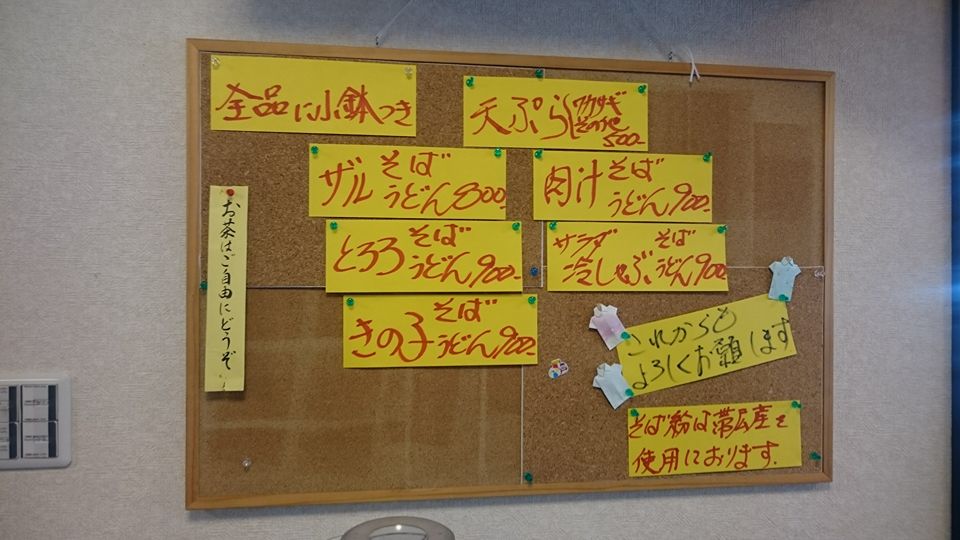 全品に小鉢つき
天ぷら ワカサギ
その他
500-
ザル そば
うどん 800-
肉汁 そば
うどん 900-
とろろ そば
うどん 900-
サラダ そば
冷しゃぶ うどん 900-
きの子 そば
うどん 900-
お茶はご自由にどうぞ
これからも
よろしくお願します
そば粉は帯広産を
使用しております.